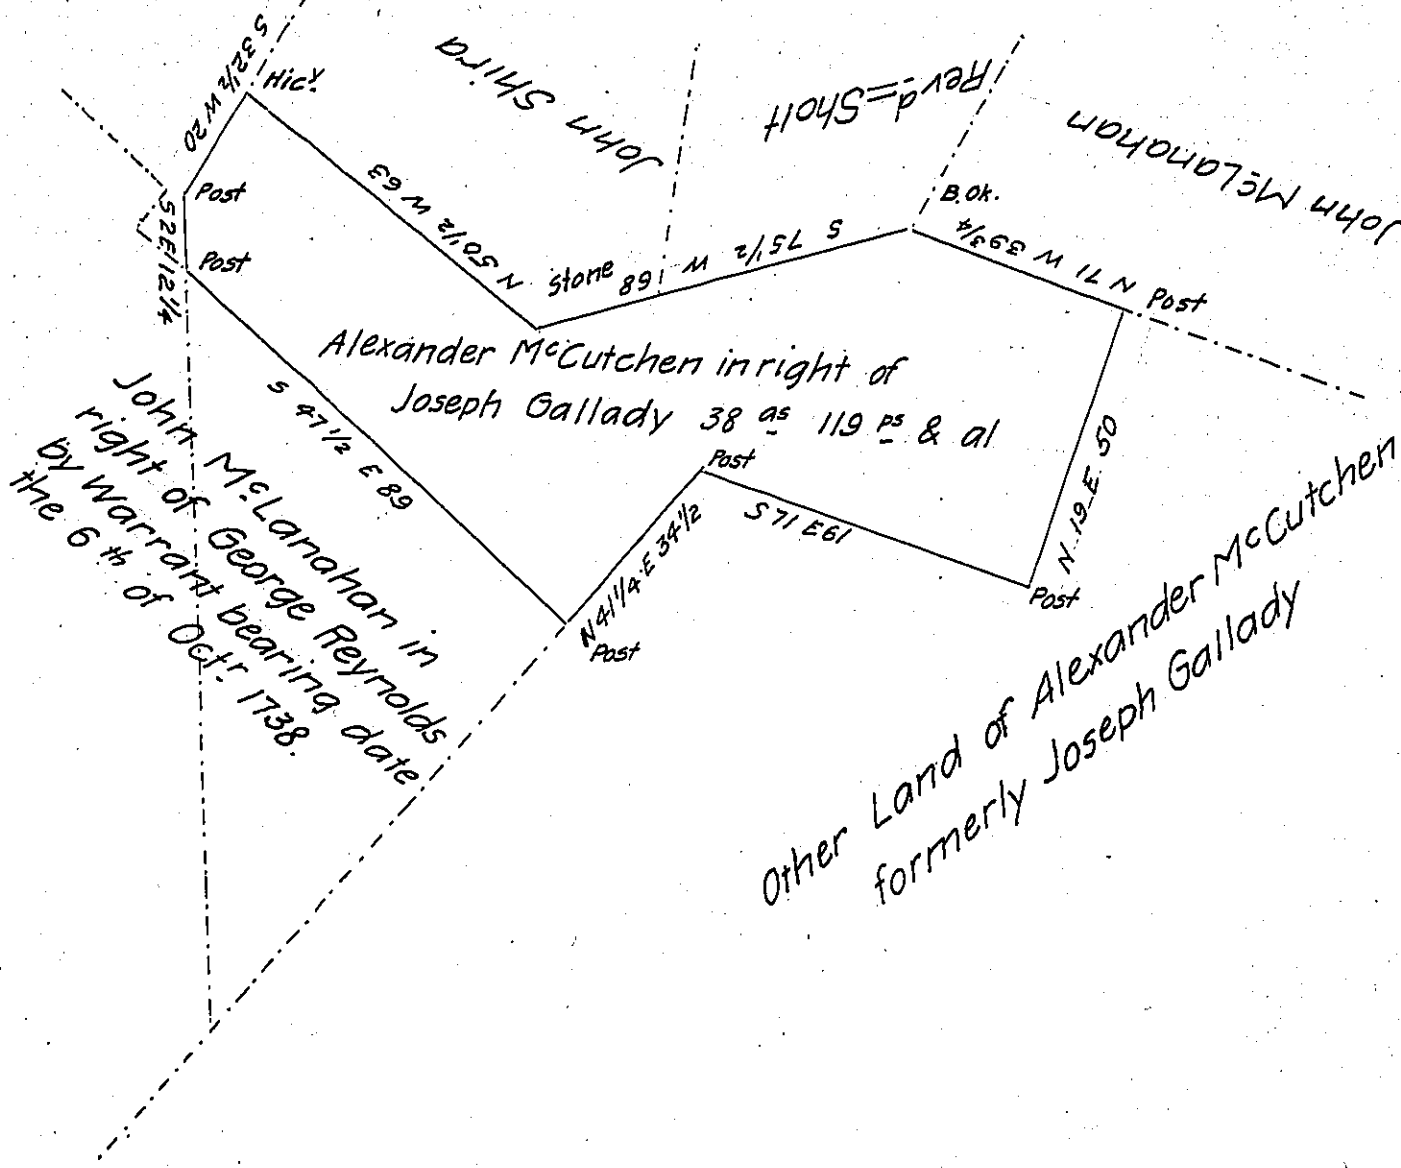 S 32½ W 20
Hicy.
John Shira
Revd = Sholt
John McLanahan
Post
S2E 12¼
Post
N 50½ W 63
Stone
S 75½ W 68
B.Ok.
N 71 W 39¾
Post
Alexander McCutchen in right of
Joseph Gallady 38 as 119 ps & al
S 47½ E 89
Post
N 41¼ E 34½
Post
S 71 E 61
Post
N. 19 E. 50
John McLanahan in
right of George Reynolds
by Warrant bearing date
the 6th of Octr. 1738.
Other Land of Alexander McCutchen
formerly Joseph Gallady